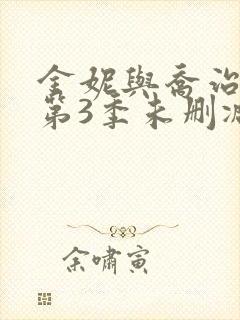 金妮與喬治
第3季未刪減
余嘯寅